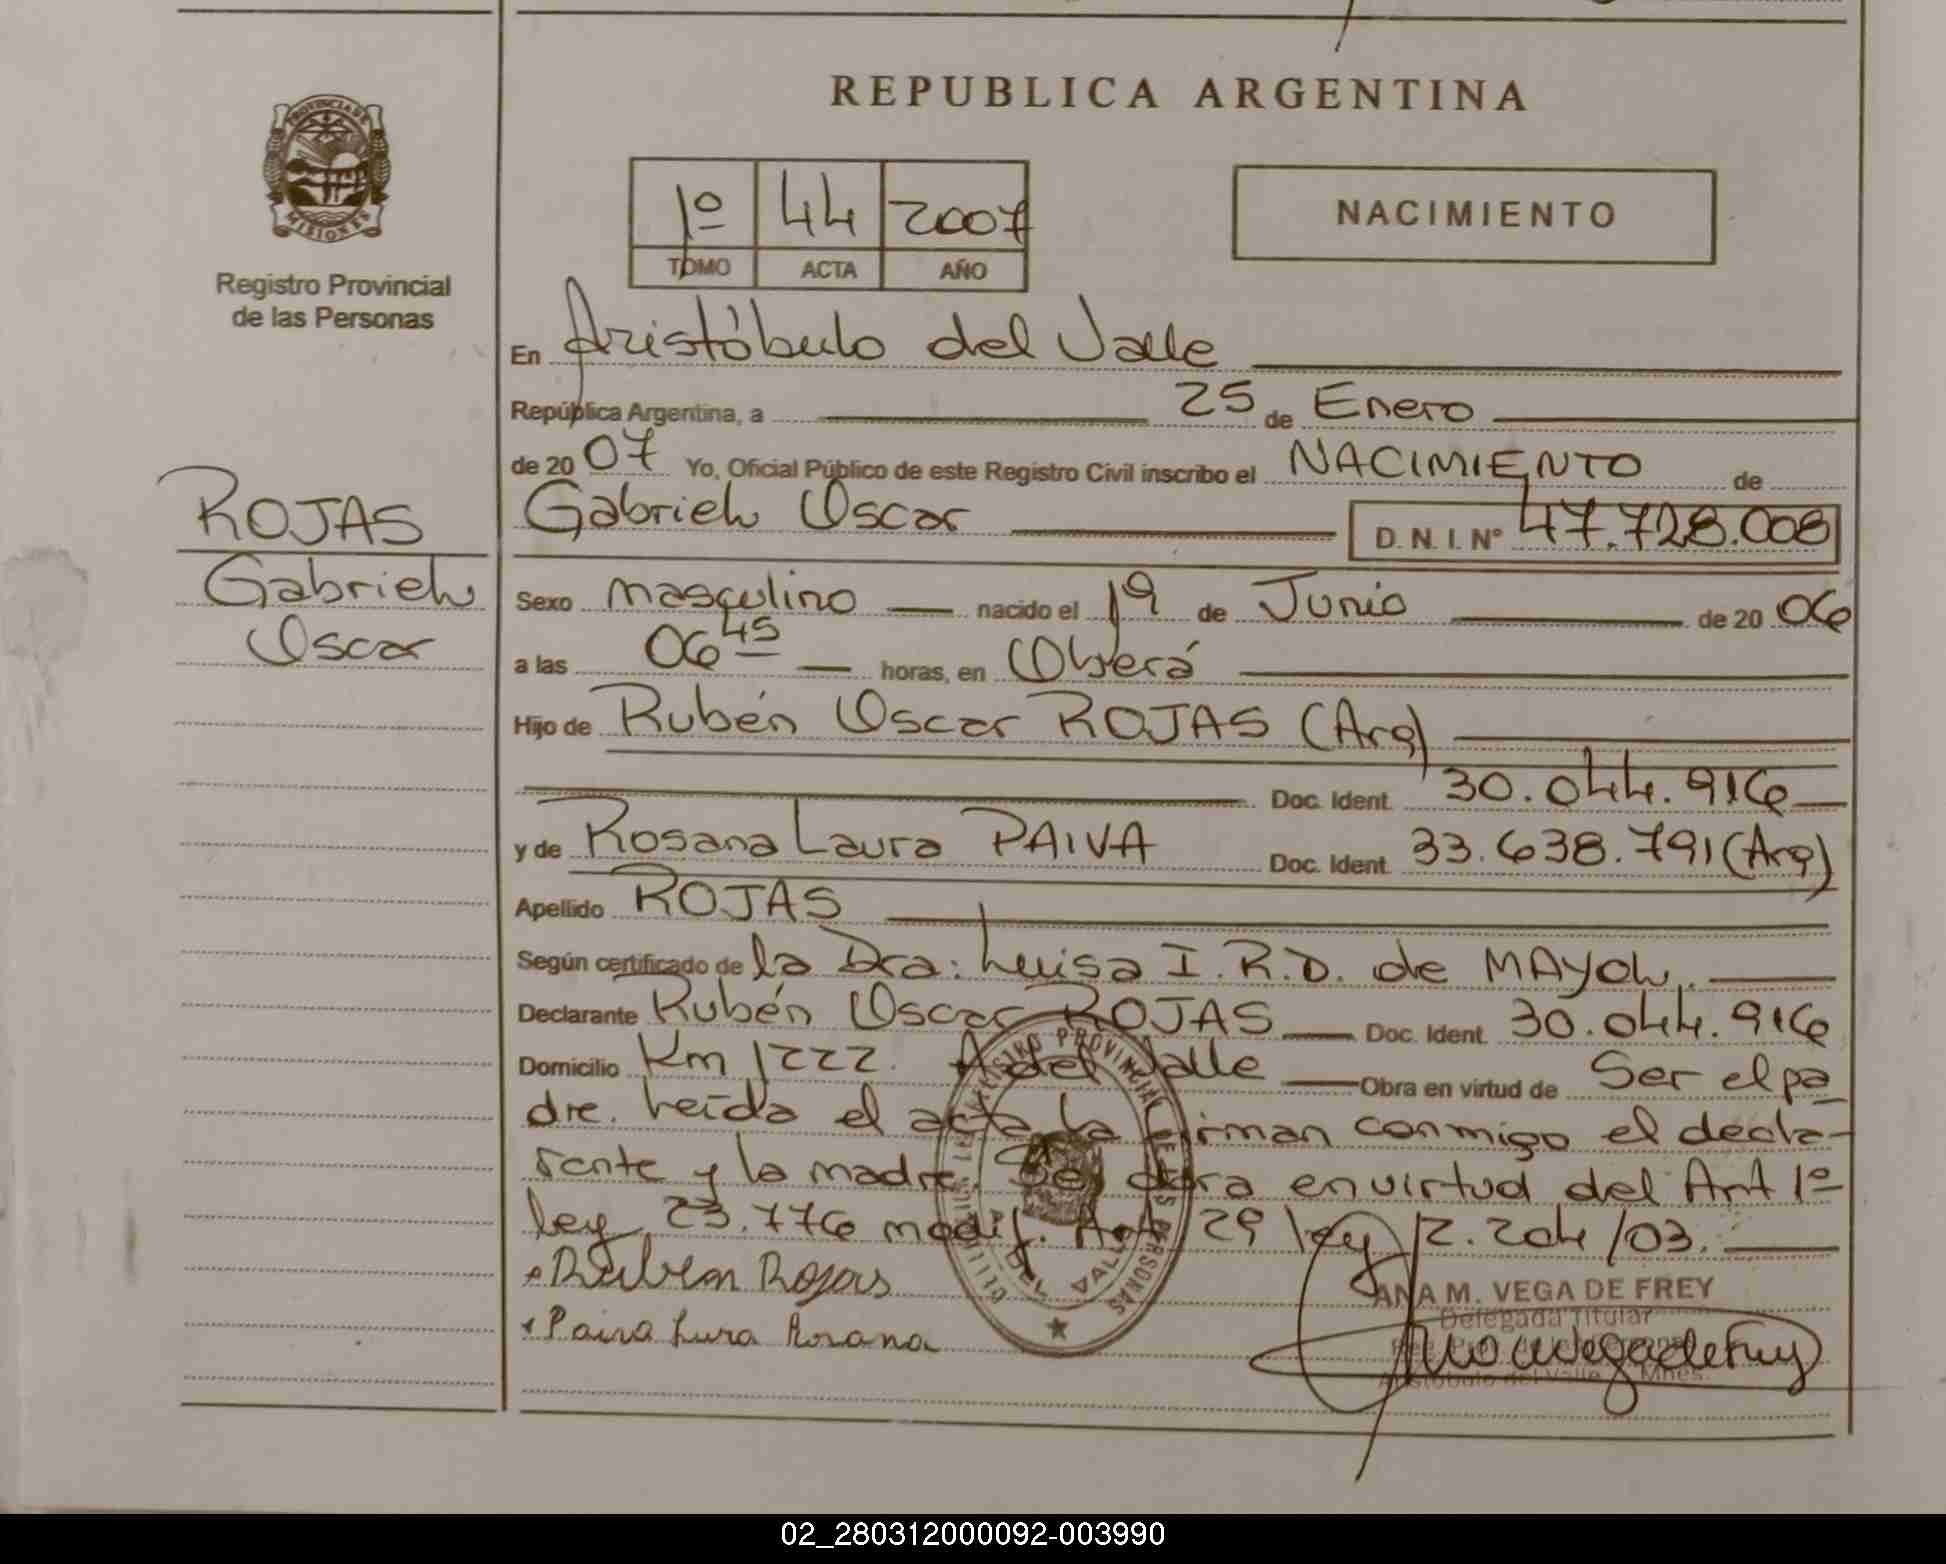 REPUBLICA ARGENTINA
PROVINCIA DE MISIONES
Registro Provincial
de las Personas
1º 44 2007
TOMO ACTA AÑO
NACIMIENTO
En Aristóbulo del Valle
República Argentina, a 25 de Enero
de 2007 Yo, Oficial Público de este Registro Civil inscribo el NACIMIENTO de
Gabriel Oscar D.N.I. Nº 47.728.008
ROJAS
Gabriel
Oscar
Sexo masculino nacido el 19 de Junio de 2006
a las 06 45 horas, en Oberá
Hijo de Rubén Oscar ROJAS (Arg)
Doc. Ident. 30.044.916
y de Rosana Laura PAIVA Doc. Ident. 33.638.791 (Arg)
Apellido ROJAS
Según certificado de la Dra. Luisa I.R.D. de MAYOL.
Declarante Rubén Oscar ROJAS Doc. Ident. 30.044.916
Domicilio Km 1222. A del Valle Obra en virtud de Ser el pa
dre. Leída el acta la firman conmigo el decla-
rante y la madre. Se obra en virtud del Art 1º
ley 23.776 modif. Art 29 ley 2.204/03.
Ruben Rojas
Paiva Lura Rosana
REGISTRO PROVINCIAL DE LAS PERSONAS
A. DEL VALLE
ANA M. VEGA DE FREY
Delegada Titular
Aristóbulo del Valle Mnes.
02_280312000092-003990